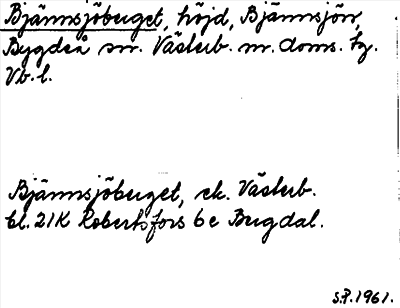 Bjännsjöberget, höjd, Bjännsjön,
Bygdeå sn. Västerb. n. doms. tg.
Vb. l.
Bjännsjöberget, ek. Västerb.
bl. 21K Robertsfors 6e Bugdal.
S.P. 1961.